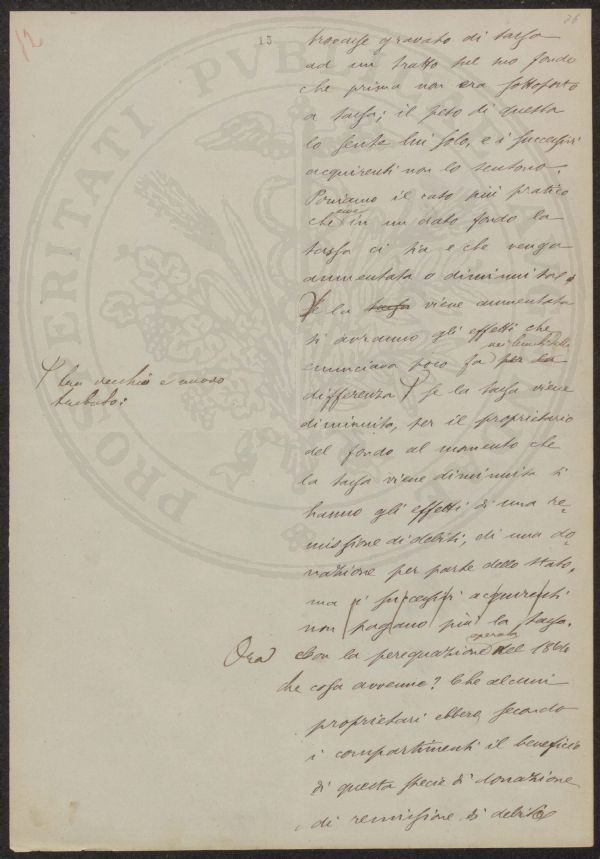 12
13
26
trovasse gravato di tassa
ad un tratto sul suo fondo
che prima non era sottoposto
a tassa; il peso di questa
lo sente lui solo, e i successivi
acquirenti non lo sentono.
Poniamo il caso più pratico
che in un dato fondo la
tassa ci sia e che venga
aumentata o diminuita.
Se la tassa viene aumentata
si avranno gli effetti che
enunciava poco fa per la
differenza se la tassa viene
diminuita, per il proprietario
del fondo al momento che
la tassa viene diminuita si
hanno gli effetti di una re-
missione di debiti, di una do-
nazione per parte dello Stato,
ma i successivi acquirenti
non pagano più la tassa.
Ora Con la perequazione operata del 1864
che cosa avvenne? Che alcuni
proprietari ebbero secondo
i compartimenti il beneficio
di questa specie di donazione
di remissione di debito
tra vecchio e nuovo
tributo:
PROSPERITATI PVBLICAE